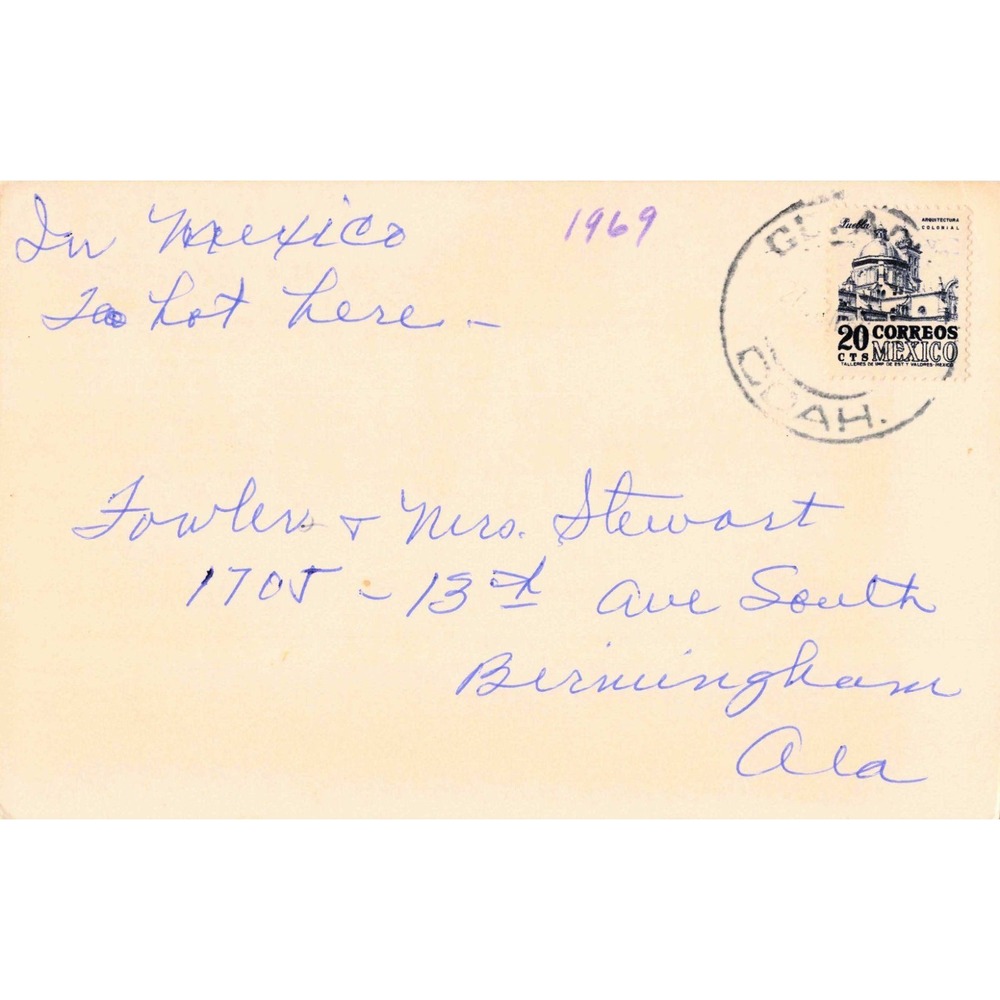 In Mexico
To hot here –
1969
Puebla
ARQUITECTURA
COLONIAL
20 CTS
CORREOS
MEXICO
TALLERES DE IMP. DE EST. Y VALORES-MEXICO
COAH.
Fowlers + Mrs. Stewart
1705 – 13th Ave South
Birmingham
Ala